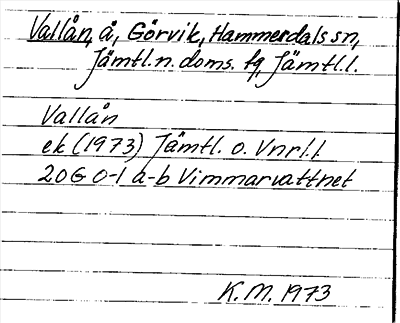 Vallån, å, Görvik, Hammerdals sn,
Jämtl. n. doms. fg, Jämtl. l.
Vallån
ek (1973) Jämtl. o. Vnrl. l.
20G 0-1 a-b Vimmarvattnet
K.M. 1973